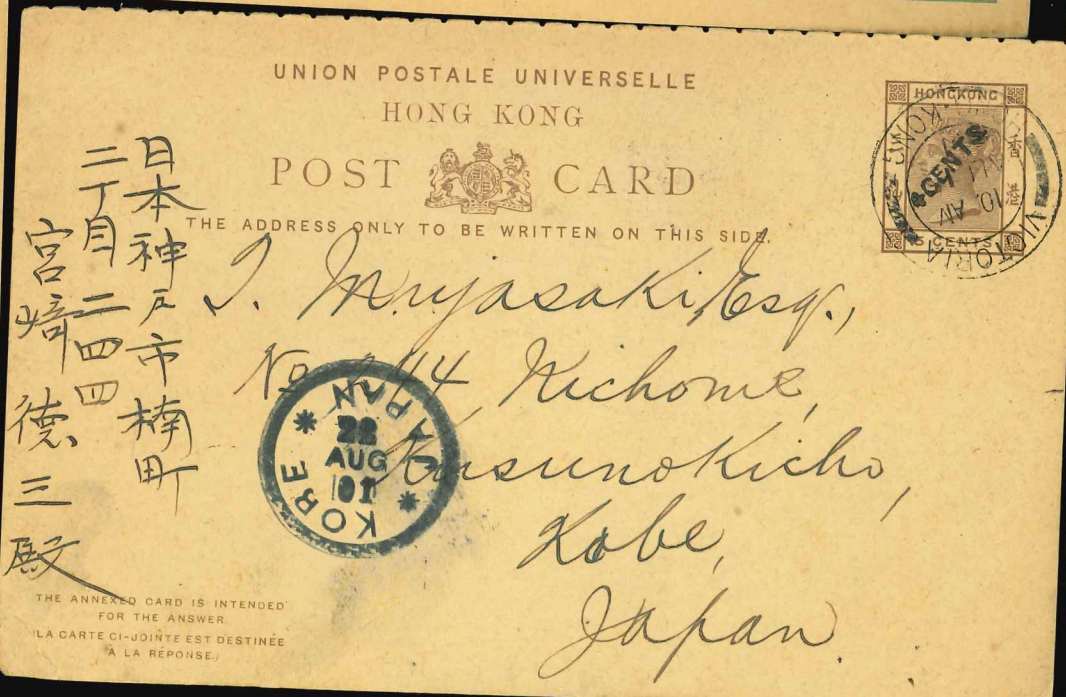 UNION POSTALE UNIVERSELLE
HONG KONG
POST CARD
THE ADDRESS ONLY TO BE WRITTEN ON THIS SIDE.
HONGKONG
香港
4 CENTS
CENTS
VICTORIA
10. AM
日本神戸市楠町
二丁目二四四
宮崎徳三殿
T. Miyasaki, Esq.,
No 244, Nichome,
Kusunokicho,
Kobe,
Japan.
KOBE
JAPAN
28
AUG
01
THE ANNEXED CARD IS INTENDED
FOR THE ANSWER.
(LA CARTE CI-JOINTE EST DESTINÉE
À LA RÉPONSE.)